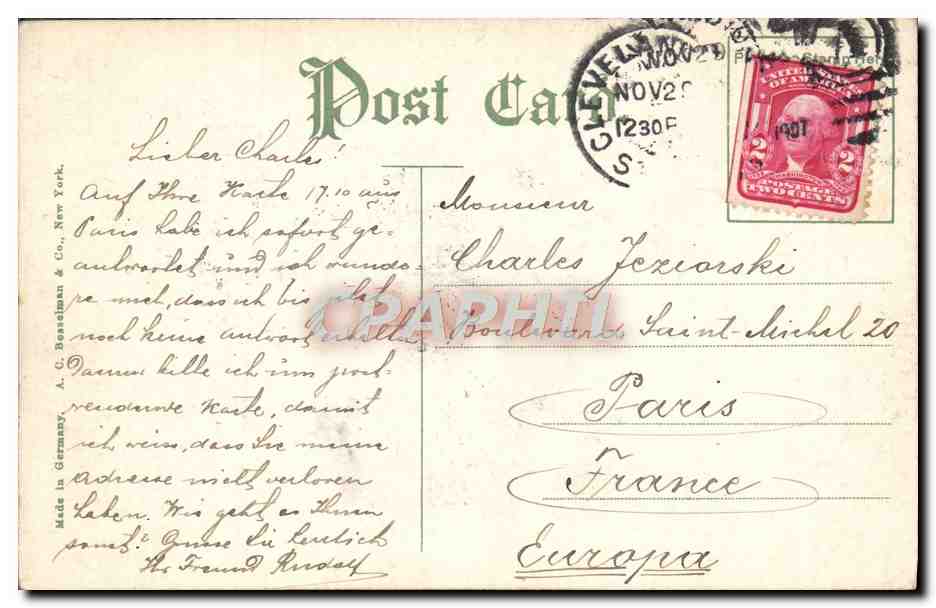 Post Card
CLEVELAND
NOV 29
NOV 29
12 30 P
1907
Place Stamp Here
UNITED STATES
OF AMERICA
2 2
POSTAGE
TWO CENTS
Made in Germany. A. C. Bosselman & Co., New York.
Lieber Charles!
Auf Ihre Karte 17.10 aus
Paris habe ich sofort ge-
antwortet und ich wunde-
re mich, dass ich bis jetzt
noch keine antwort erhalten
Darum bitte ich um post-
wendende Karte, damit
ich weiss, dass Sie meine
Adresse nicht verloren
haben. Wie geht es Ihnen
sonst? Grüsse Sie herzlich
Ihr Freund Rudolf
Monsieur
Charles Jeziorski
Boulevard Saint-Michel 20
Paris
France
Europa
CPAPHIL